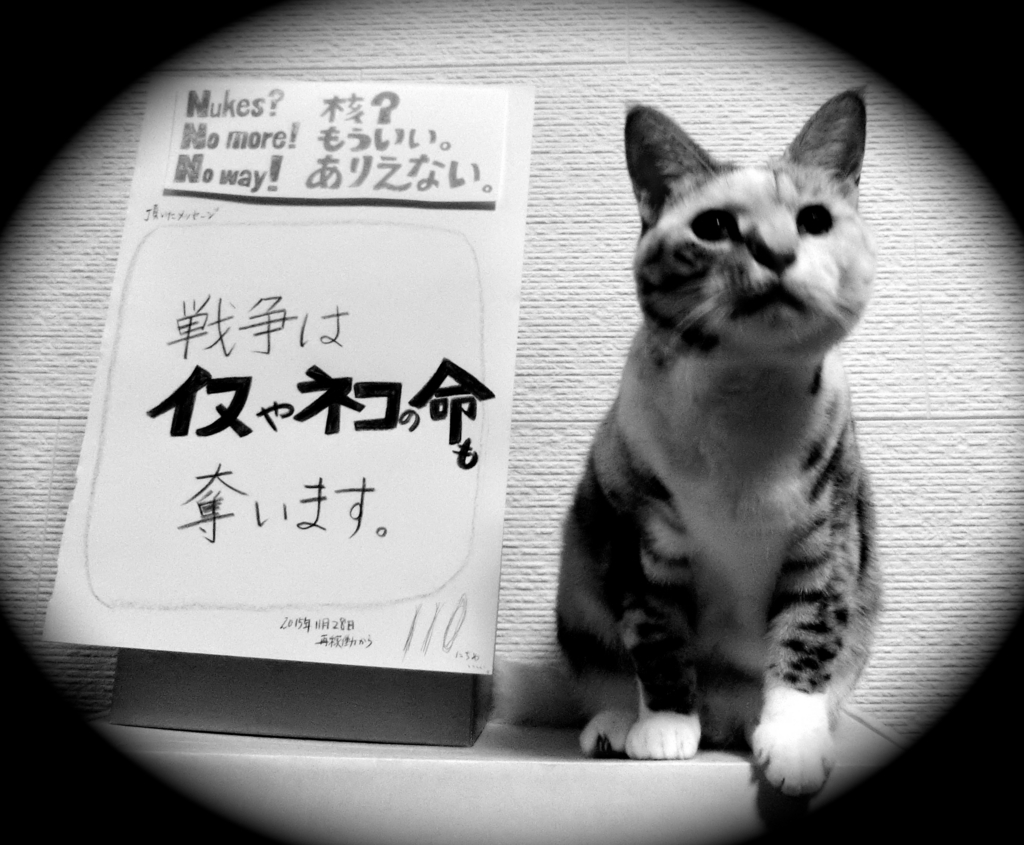 Nukes? 核?
No more! もういい。
No way! ありえない。
頂いたメッセージ
戦争は
イヌやネコの命も
奪います。
2015年11月28日
再稼働から
110
にちめ